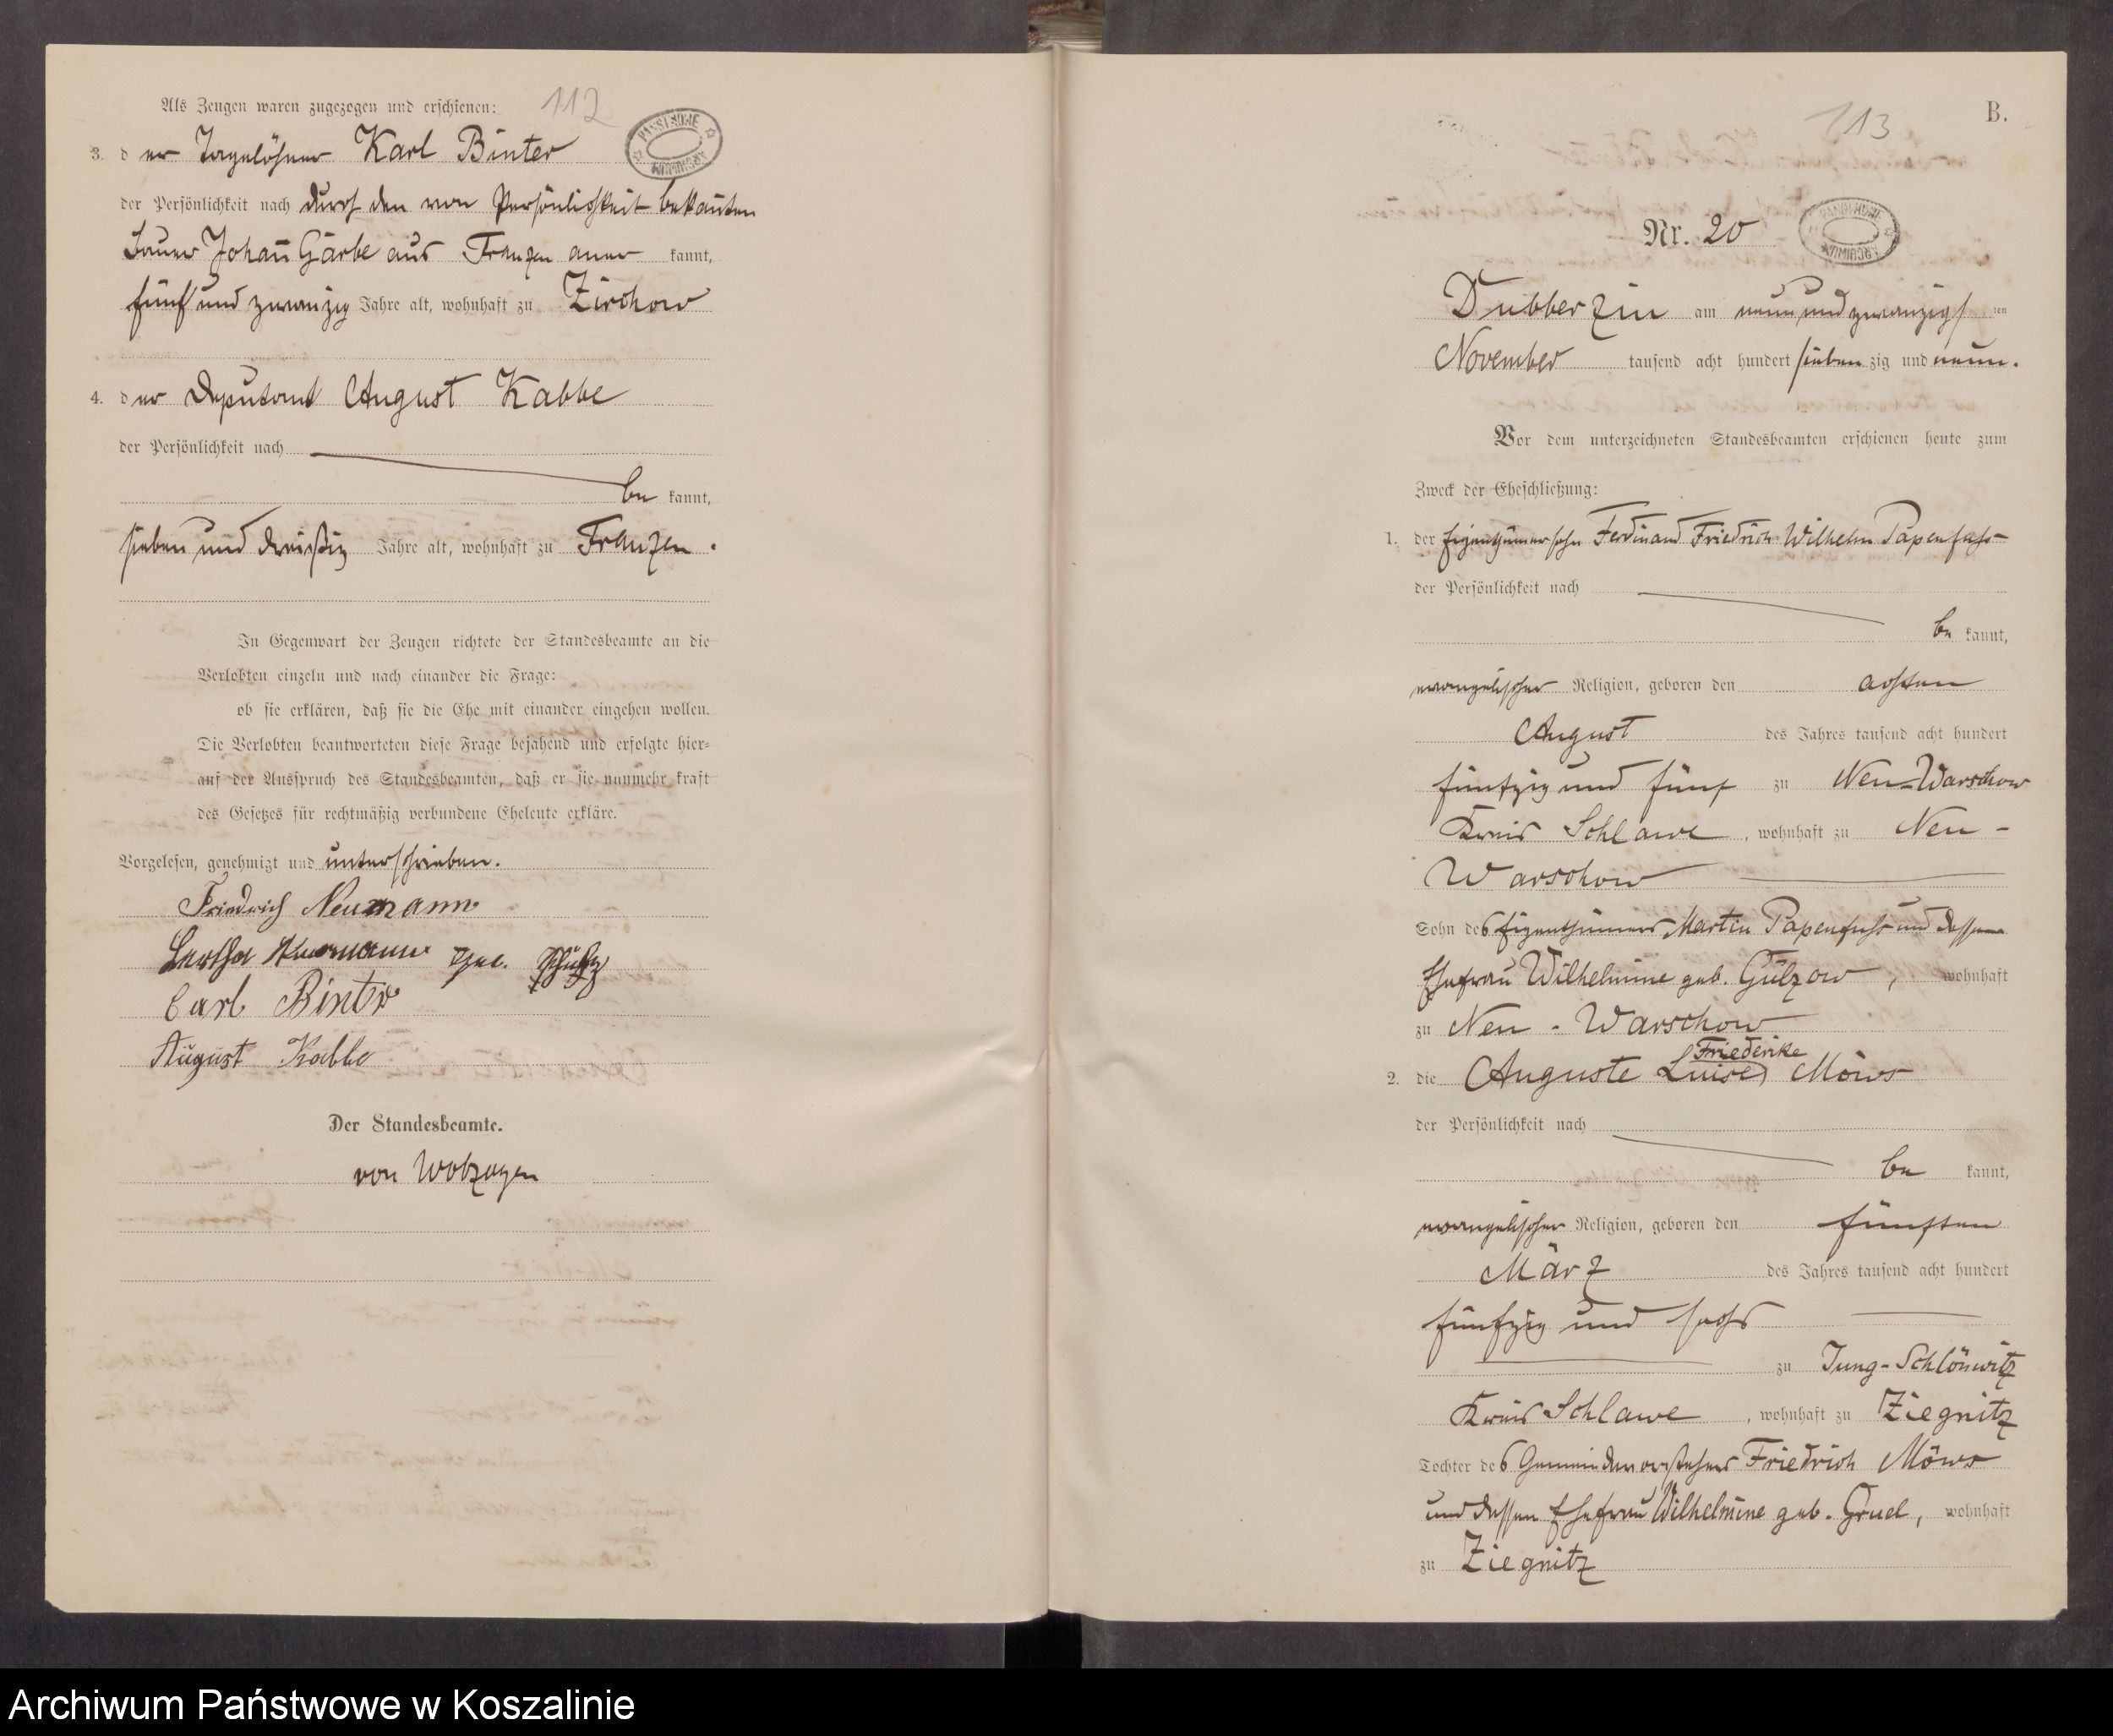 Als Zeugen waren zugezogen und erschienen:
112
PANSTWOWE ARCHIWUM
3. der Tagelöhner Karl Binter
der Persönlichkeit nach durch den von Persönlichkeit bekañten
Bauer Johañ Garbe aus Franzen aner kannt,
fünf und zwanzig Jahre alt, wohnhaft zu Zirchow
4. der Deputant August Kabbe
der Persönlichkeit nach
be kannt,
sieben und dreißig Jahre alt, wohnhaft zu Franzen.
In Gegenwart der Zeugen richtete der Standesbeamte an die
Verlobten einzeln und nach einander die Frage:
ob sie erklären, daß sie die Ehe mit einander eingehen wollen.
Die Verlobten beantworteten diese Frage bejahend und erfolgte hier=
auf der Ausspruch des Standesbeamten, daß er sie nunmehr kraft
des Gesetzes für rechtmäßig verbundene Eheleute erkläre.
Vorgelesen, genehmigt und unterschrieben.
Friedrich Neumann
Bertha Neumann geb.
Carl Binter
August Kabbe
Der Standesbeamte.
von Wolzogen
B.
113
Nr. 20
PANSTWOWE ARCHIWUM
Dubberzin am neun und zwanzigsten
November tausend acht hundert sieben zig und neun.
Vor dem unterzeichneten Standesbeamten erschienen heute zum
Zweck der Eheschließung:
1. der Eigenthümersohn Ferdinand Friedrich Wilhelm Papenfuss
der Persönlichkeit nach
be kannt,
evangelischer Religion, geboren den achten
August des Jahres tausend acht hundert
fünfzig und fünf zu Neu-Warschow
Kreis Schlawe, wohnhaft zu Neu-
Warschow
Sohn des Eigenthümers Martin Papenfuss und dessen
Ehefrau Wilhelmine geb. Gülzow, wohnhaft
zu Neu-Warschow
Friederike
2. die Auguste Luise Möws
der Persönlichkeit nach
be kannt,
evangelischer Religion, geboren den fünften
März des Jahres tausend acht hundert
fünfzig und sechs
zu Jung-Schlönwitz
Kreis Schlawe, wohnhaft zu Ziegnitz
Tochter des Gemeindevorstehers Friedrich Möws
und dessen Ehefrau Wilhelmine geb. Gruel, wohnhaft
zu Ziegnitz
Archiwum Państwowe w Koszalinie